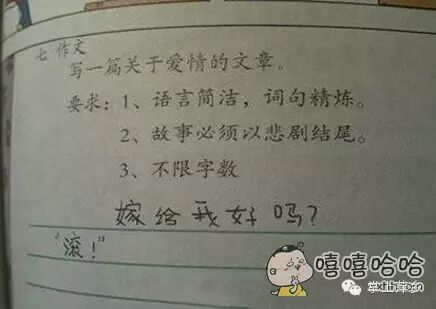 七 作文
写一篇关于爱情的文章。
要求：1、语言简洁，词句精炼。
2、故事必须以悲剧结尾。
3、不限字数
嫁给我好吗？
“滚！”
嘻嘻哈哈